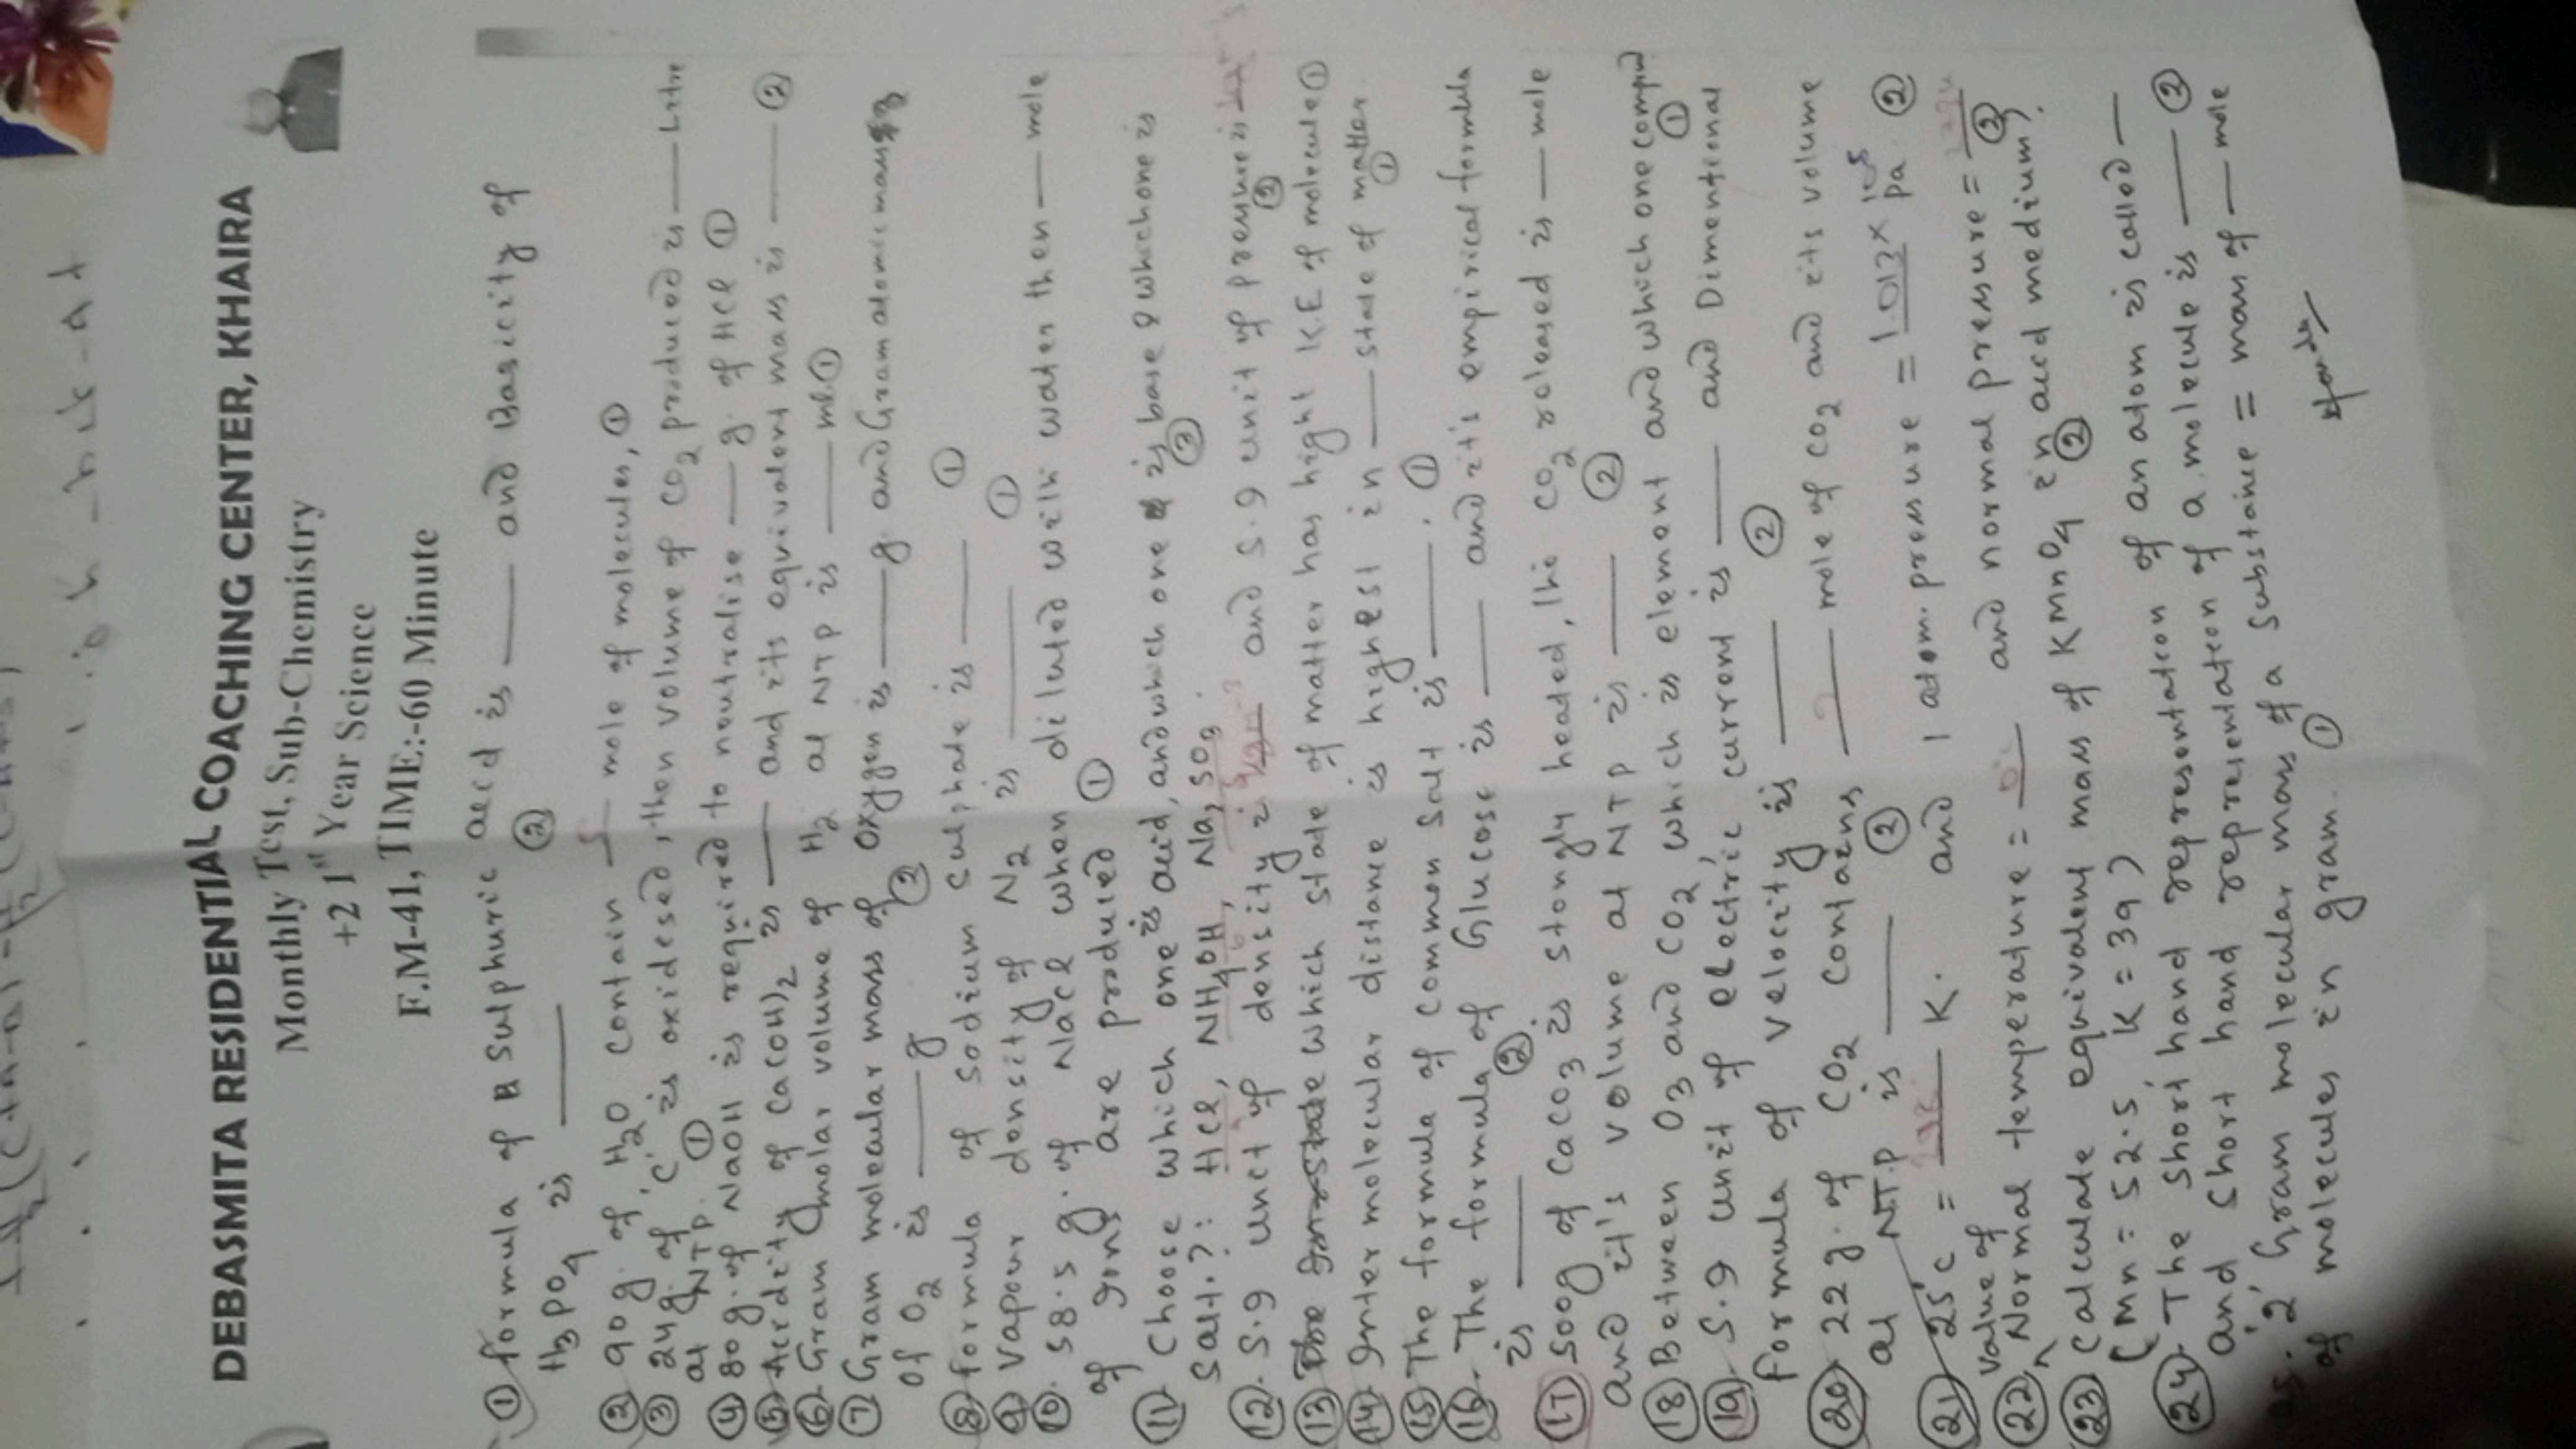 DEBASMITA RESIDENTIAL COACHING CENTER, KHAIRA
Monthly Test, Sub-Chemistry
+2 1st Year Science
F.M-41, TIME:-60 Minute
① formula of Sulphuric acid is — and Basicity of
H3PO4 is — ②
② 90g. of H2O contain — mole of molecules, ①
③ 24g. of 'C' is oxidesed, then volume of CO2 produced is — Litre
at NTP. ①
④ 80g. of NaOH is required to neutralise — g. of HCl ①
⑤ Acidity of Ca(OH)2 is — and its equivalent mass is — ②
⑥ Gram molar volume of H2 at NTP is — ml. ①
⑦ Gram molecular mass of Oxygen is — g. and Gram atomic mass
of O2 is — g ②
⑧ formula of sodium sulphate is — ①
⑨ Vapour density of N2 is — ①
⑩. 58.5 g. of NaCl when diluted with water then — mole
of ions are produced ①
⑪ Choose which one is acid, and which one is base & which one is
Salt.?: HCl, NH4OH, Na2SO3. ③
⑫. S.I unit of density is and S.I unit of pressure is ②
⑬ which state of matter has hight K.E of molecule ①
⑭ Inter molecular distance is highest in — state of matter. ①
⑮ The formula of common salt is —. ①
⑯. The formula of Glucose is — and it's empirical formula
is — ②
⑰ 500g of CaCO3 is stongly heated, the CO2 released is — mole
and it's volume at NTP is — ②
⑱ Between O3 and CO2 which is element and which one compnd ①
⑲ S.I unit of electric current is — and Dimentional
formula of velocity is — ②
⑳ 22g. of CO2 contains — mole of CO2 and its volume
at NTP is — ②
㉑ 25°C = 298 K. and 1 atom. pressure = 1.013 × 10^5 pa. ②
㉒ Value of Normal temperature = and normal pressure = ②
㉓ Calculate equivalent mass of KMnO4 in acid medium?
(Mn = 52.5 K = 39) ②
㉔. The short hand representation of an atom is called —
and short hand representation of a molecule is — ②
25. '2' Gram molecular mass of a substaine = mass of — mole
of molecules in gram. ①